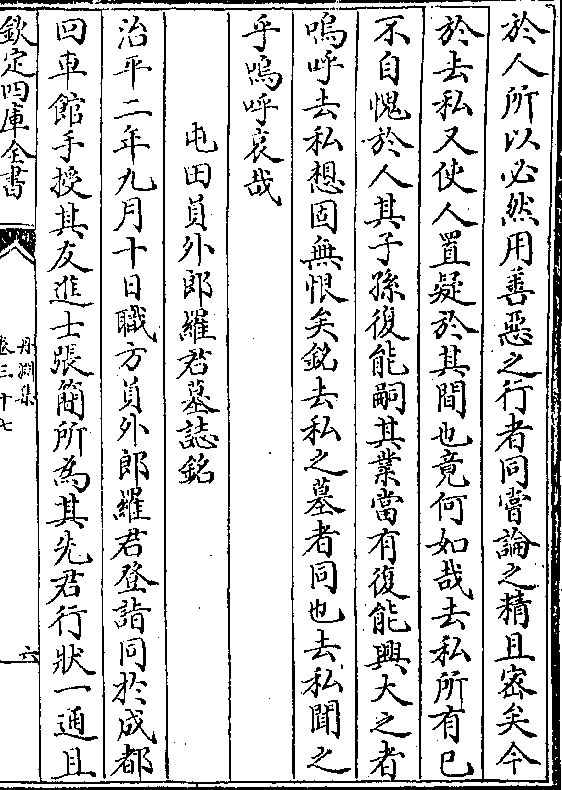 於人所以必然用善惡之行者同嘗論之精且密矣今
於去私又使人置疑於其間也竟何如哉去私所有已
不自愧於人其子孫復能嗣其業當有復能興大之者
嗚呼去私想固無恨矣銘去私之墓者同也去私聞之
乎嗚呼哀哉
屯田員外郎羅君墓誌銘
治平二年九月十日職方員外郎羅君登詣同於成都
回車館手授其友進士張簡所為其先君行狀一通且
欽定四庫全書
丹淵集
卷三十七
六